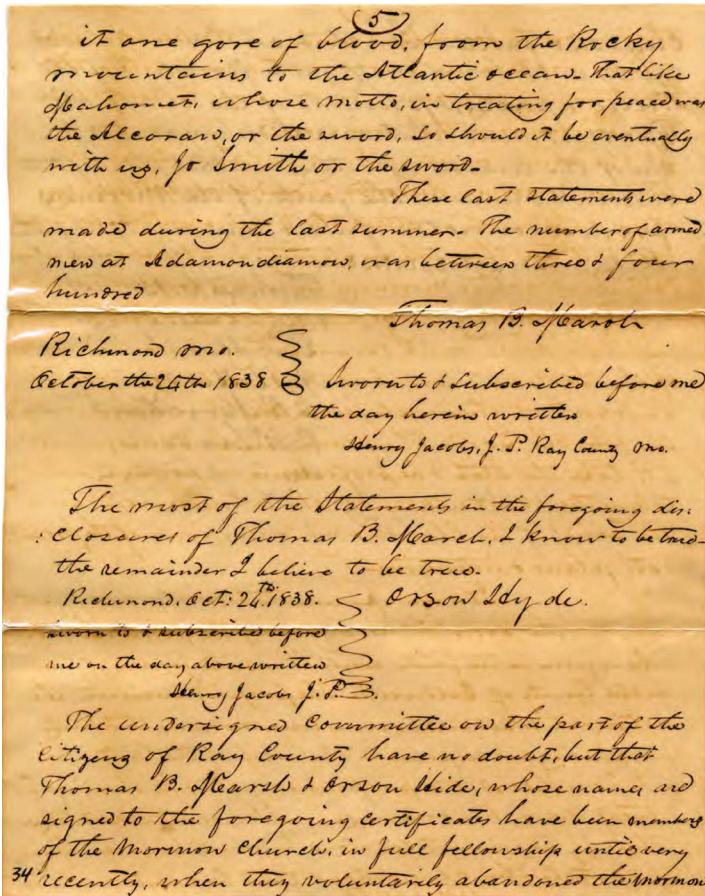 5
it one gore of blood, from the Rocky
mountains to the Atlantic ocean. That like
Mahomet, whose motto, in treating for peace was
the Alcoran, or the sword, so should it be eventually
with us, Jo Smith or the sword.
These last statements were
made during the last summer. The number of armed
men at Adamondiamon, was between three & four
hundred
Thomas B. Marsh
Richmond Mo.
October the 24th 1838
Sworn to & subscribed before me
the day herein written
Henry Jacobs, J. P. Ray County Mo.
The most of the Statements in the foregoing dis:
:closures of Thomas B. March, I know to be true
the remainder I believe to be true.
Richmond, Oct: 24th. 1838.
Orson Hyde.
sworn to & subscribed before
me on the day above written
Henry Jacobs J. P.
The undersigned Committee on the part of the
Citizens of Ray County have no doubt, but that
Thomas B. Marsh & Orson Hide, whose names are
signed to the foregoing certificates have been members
of the Mormon church, in full fellowship until very
34 recently, when they voluntarily abandoned the mormon